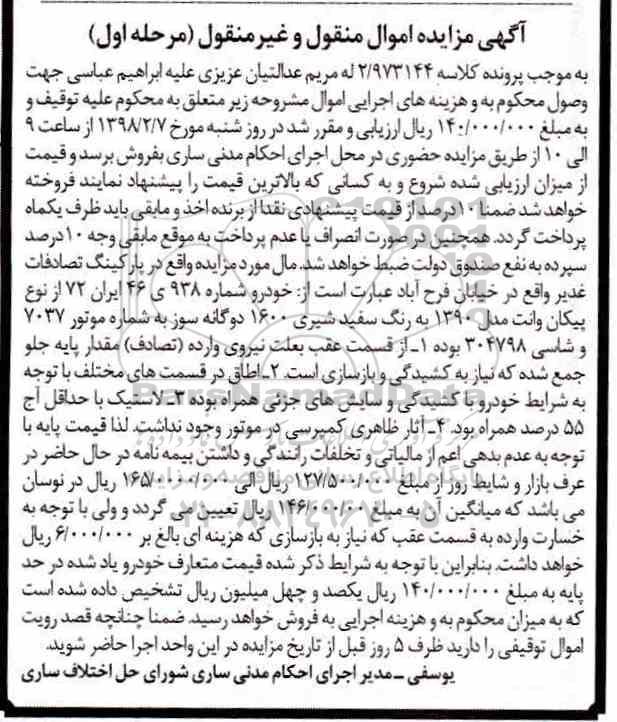 آگهی مزایده اموال منقول و غیرمنقول (مرحله اول)
به موجب پرونده کلاسه ۲/۹۷۳۱۴۴ له مریم عدالتیان عزیزی علیه ابراهیم عباسی جهت
وصول محکوم به و هزینه های اجرایی اموال مشروحه زیر متعلق به محکوم علیه توقیف و
به مبلغ ۱۴۰/۰۰۰/۰۰۰ ریال ارزیابی و مقرر شد در روز شنبه مورخ ۱۳۹۸/۲/۷ از ساعت ۹
الی ۱۰ از طریق مزایده حضوری در محل اجرای احکام مدنی ساری بفروش برسد و قیمت
از میزان ارزیابی شده شروع و به کسانی که بالاترین قیمت را پیشنهاد نمایند فروخته
خواهد شد ضمنا ۱۰درصد از قیمت پیشنهادی نقدا از برنده اخذ و مابقی باید ظرف یکماه
پرداخت گردد. همچنین در صورت انصراف یا عدم پرداخت به موقع مابقی وجه ۱۰درصد
سپرده به نفع صندوق دولت ضبط خواهد شد. مال مورد مزایده واقع در پارکینگ تصادفات
غدیر واقع در خیابان فرح آباد عبارت است از: خودرو شماره ۹۳۸ ی ۴۶ ایران ۷۲ از نوع
پیکان وانت مدل ۱۳۹۰ به رنگ سفید شیری ۱۶۰۰ دوگانه سوز به شماره موتور ۷۰۳۷
و شاسی ۳۰۴۷۹۸ بوده ۱ـ از قسمت عقب بعلت نیروی وارده (تصادف) مقدار پایه جلو
جمع شده که نیاز به کشیدگی و بازسازی است. ۲ـ اطاق در قسمت های مختلف با توجه
به شرایط خودرو با کشیدگی و سایش های جزئی همراه بوده ۳ـ لاستیک با حداقل آج
۵۵ درصد همراه بود. ۴ـ آثار ظاهری کمپرسی در موتور وجود نداشت. لذا قیمت پایه با
توجه به عدم بدهی اعم از مالیاتی و تخلفات رانندگی و داشتن بیمه نامه در حال حاضر در
عرف بازار و شایط روز از مبلغ ۱۲۷/۵۰۰/۰۰۰ ریال الی ۱۶۵/۰۰۰۰/۰۰۰ ریال در نوسان
می باشد که میانگین آن به مبلغ ۱۴۶/۰۰۰/۰۰ ریال تعیین می گردد و ولی با توجه به
خسارت وارده به قسمت عقب که نیاز به بازسازی که هزینه ای بالغ بر ۶/۰۰۰/۰۰۰ ریال
خواهد داشت. بنابراین با توجه به شرایط ذکر شده قیمت متعارف خودرو یاد شده در حد
پایه به مبلغ ۱۴۰/۰۰۰/۰۰۰ ریال یکصد و چهل میلیون ریال تشخیص داده شده است
که به میزان محکوم به و هزینه اجرایی به فروش خواهد رسید. ضمنا چنانچه قصد رویت
اموال توقیفی را دارید ظرف ۵ روز قبل از تاریخ مزایده در این واحد اجرا حاضر شوید.
یوسفی ـ مدیر اجرای احکام مدنی ساری شورای حل اختلاف ساری
ParsNamadData
۰۲۱-۸۸۳۴۹۶۷۰-۵